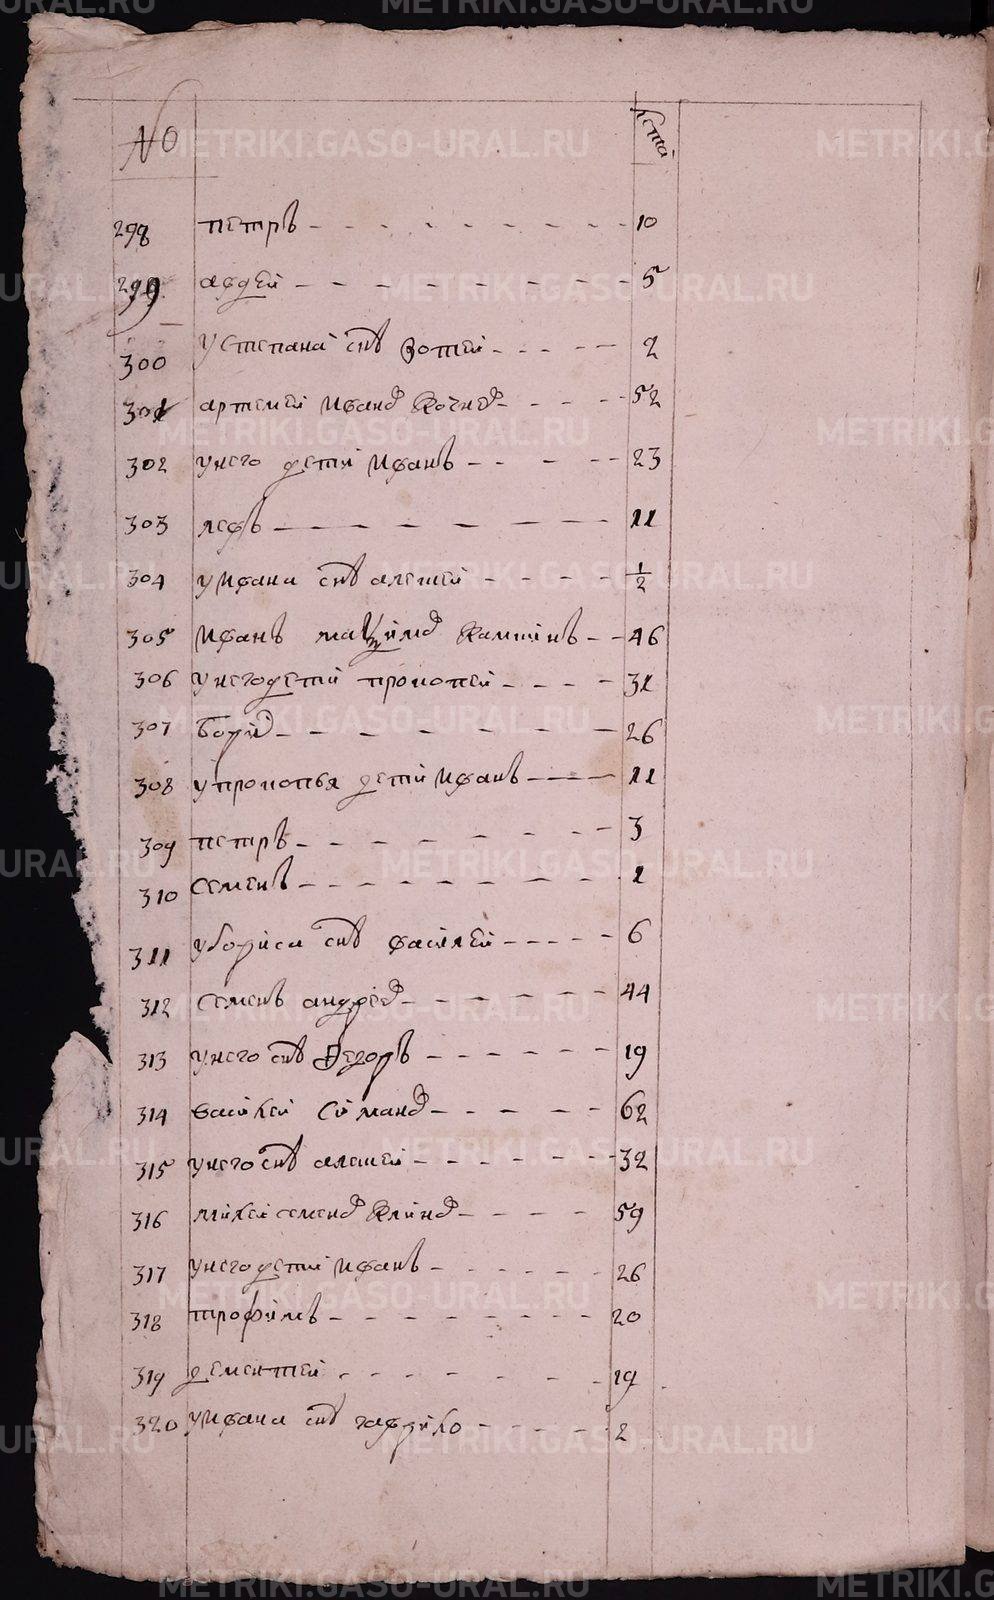 № лета
298 петръ 10
299 авдей 5
300 у степана снъ зотей 2
301 артемей иванов 52
302 у него детй иванъ 23
303 левъ 11
304 у ивана снъ алексей 1/2
305 иванъ максимов 46
306 у него детй прокопей 31
307 борис 26
308 у прокопья детй иванъ 11
309 петръ 3
310 семенъ 1
311 у бориса снъ василей 6
312 семенъ андреев 44
313 у него снъ егоръ 19
314 василей 62
315 у него снъ алексей 32
316 семенов 59
317 у него детй иванъ 26
318 трофимъ 20
319 дементей 19
320 у ивана снъ гаврило 2